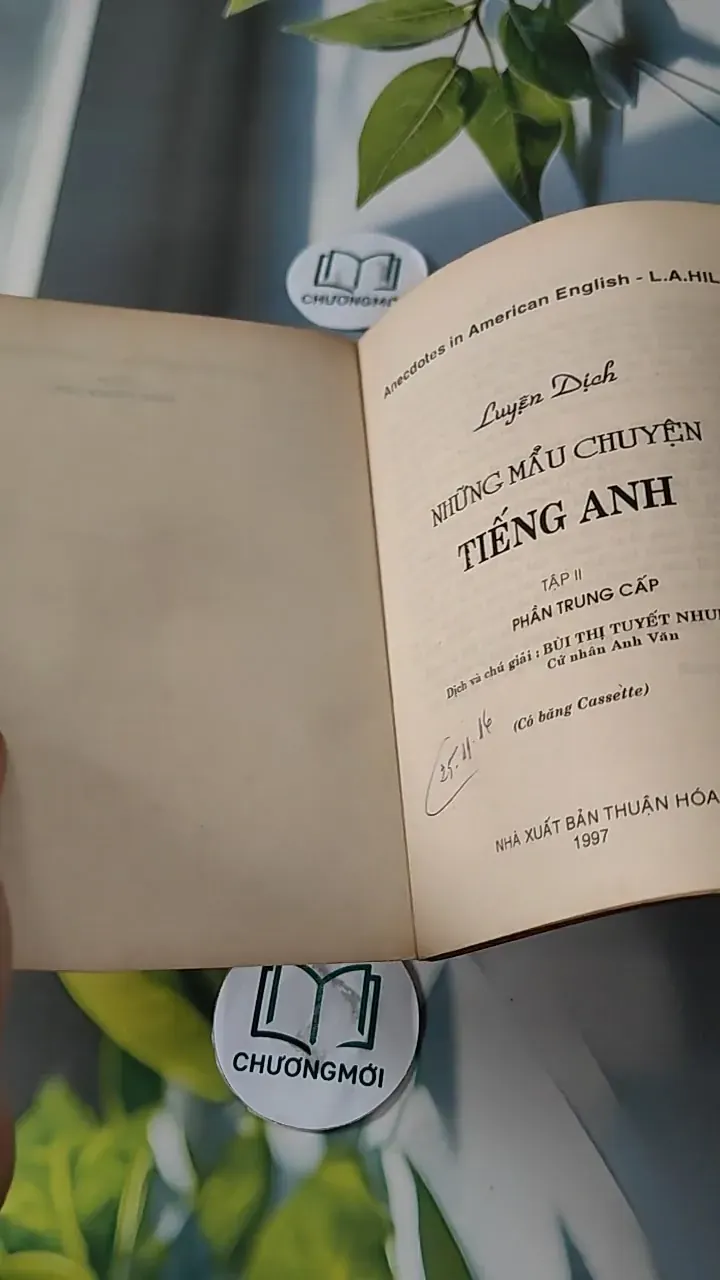 CHƯƠNGMỚI
Anecdotes in American English - L.A.HIL
Luyện Dịch
NHỮNG MẨU CHUYỆN
TIẾNG ANH
TẬP II
PHẦN TRUNG CẤP
Dịch và chú giải : BÙI THỊ TUYẾT NHU
Cử nhân Anh Văn
(Có băng Cassette)
25.11.16
NHÀ XUẤT BẢN THUẬN HÓA
1997
CHƯƠNGMỚI